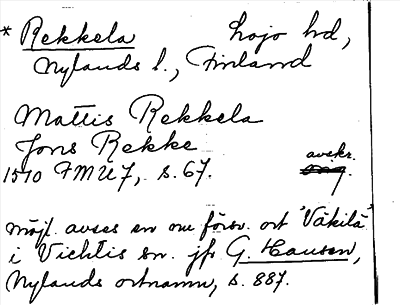 * Rekkela Lojo hd,
Nylands l., Finland
Mattis Rekkela
Jöns Rekke
avskr.
1510 FMU 7, s. 67.
möjl. avses en nu försv. ort "Väkilä"
i Vichtis sn. jfr G. Hausen,
Nylands ortnamn, s. 887.